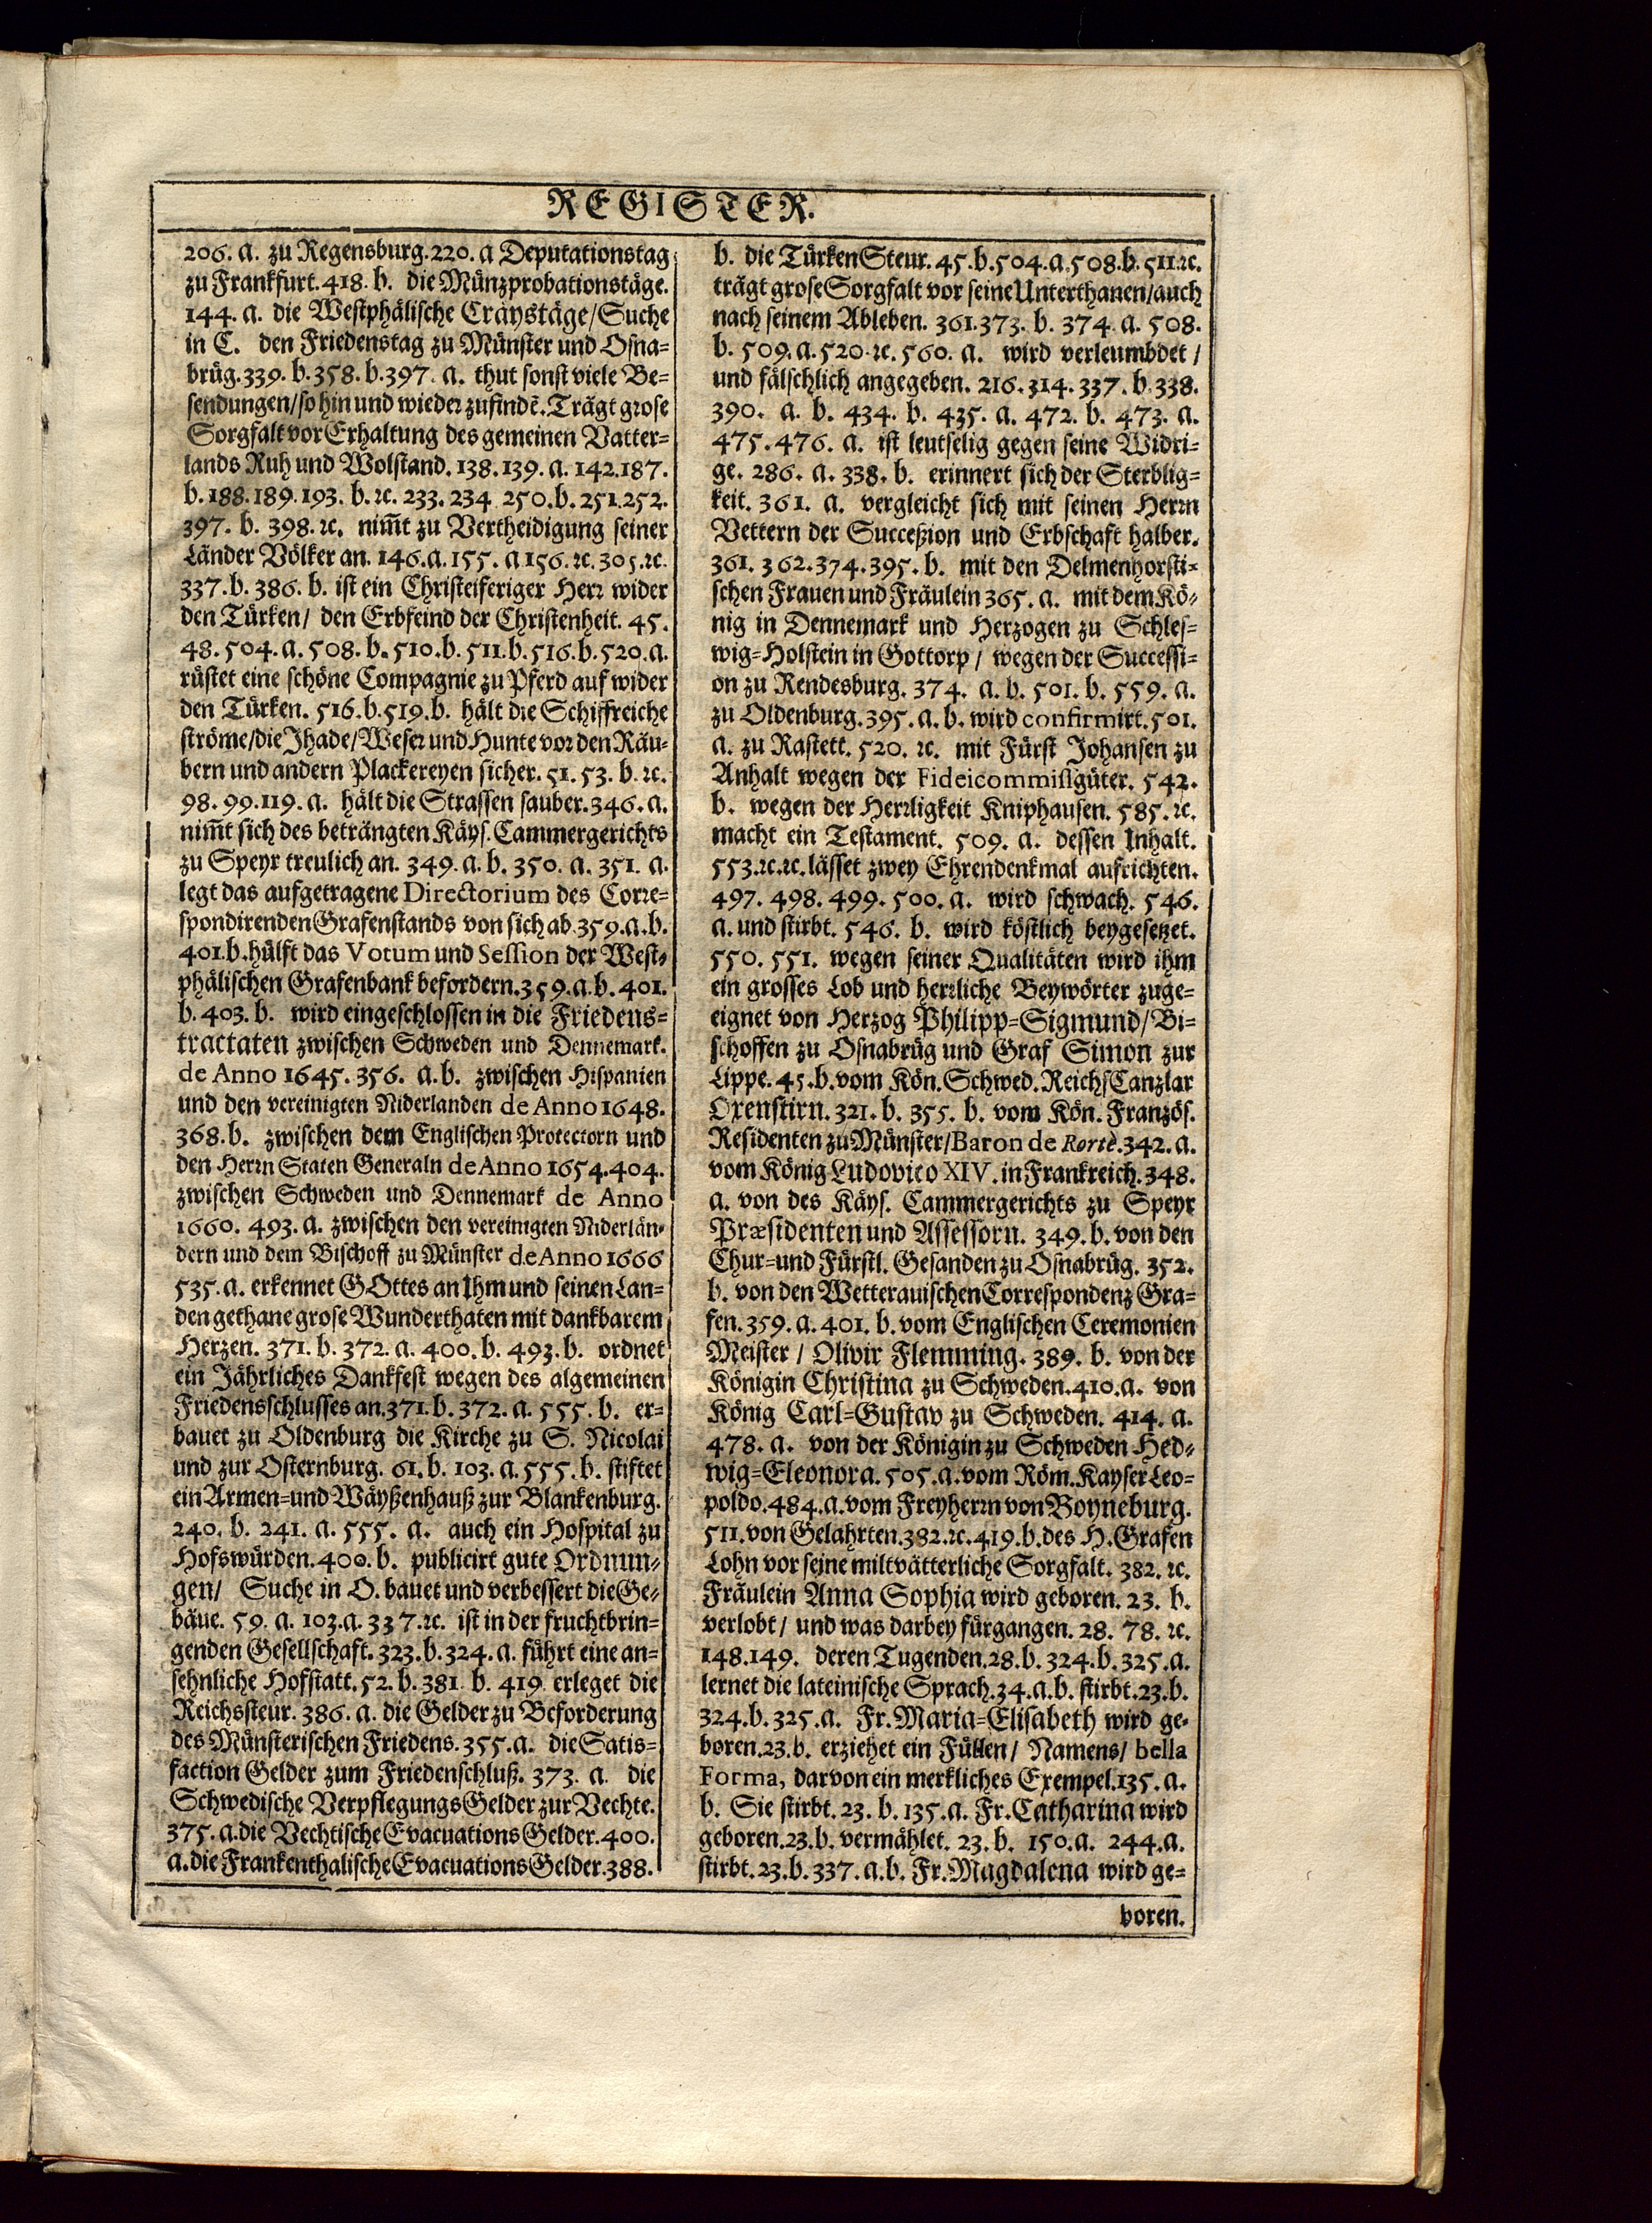 REGISTER.
206. a. zu Regensburg. 220. a Deputationstag
zu Frankfurt. 418. b. die Münzprobationstäge.
144. a. die Westphälische Cräystäge/ Suche
in C. den Friedenstag zu Münster und Osna-
brüg. 339. b. 358. b. 397. a. thut sonst viele Be-
sendungen/ so hin und wieder zufindē. Trägt grose
Sorgfalt vor Erhaltung des gemeinen Vatter-
lands Ruh und Wolstand. 138. 139. a. 142. 187.
b. 188. 189. 193. b. ꝛc. 233. 234 250. b. 251. 252.
397. b. 398. ꝛc. nim̄t zu Vertheidigung seiner
Länder Völker an. 146. a. 155. a 156. ꝛc. 305. ꝛc.
337. b. 386. b. ist ein Christeiferiger Herr wider
den Türken/ den Erbfeind der Christenheit. 45.
48. 504. a. 508. b. 510. b. 511. b. 516. b. 520. a.
rüstet eine schöne Compagnie zu Pferd auf wider
den Türken. 516. b. 519. b. hält die Schiffreiche
ströme/ die Jhade/ Weser und Hunte vor den Räu-
bern und andern Plackereyen sicher. 51. 53. b. ꝛc.
98. 99. 119. a. hält die Strassen sauber. 346. a.
nim̄t sich des beträngten Käys. Cammergerichts
zu Speyr treulich an. 349. a. b. 350. a. 351. a.
legt das aufgetragene Directorium des Corre-
spondirenden Grafenstands von sich ab. 359. a. b.
401. b. hülft das Votum und Session der West-
phälischen Grafenbank befordern. 359. a. b. 401.
b. 403. b. wird eingeschlossen in die Friedens-
tractaten zwischen Schweden und Dennemark.
de Anno 1645. 356. a. b. zwischen Hispanien
und den vereinigten Niderlanden de Anno 1648.
368. b. zwischen dem Englischen Protectorn und
den Herrn Staten Generaln de Anno 1654. 404.
zwischen Schweden und Dennemark de Anno
1660. 493. a. zwischen den vereinigten Niderlän-
dern und dem Bischoff zu Münster de Anno 1666
535. a. erkennet GOttes an Ihm und seinen Lan-
den gethane grose Wunderthaten mit dankbarem
Herzen. 371. b. 372. a. 400. b. 493. b. ordnet
ein Jährliches Dankfest wegen des algemeinen
Friedensschlusses an. 371. b. 372. a. 555. b. er-
bauet zu Oldenburg die Kirche zu S. Nicolai
und zur Osternburg. 61. b. 103. a. 555. b. stiftet
ein Armen- und Wäyßenhauß zur Blankenburg.
240. b. 241. a. 555. a. auch ein Hospital zu
Hofswürden. 400. b. publicirt gute Ordnun-
gen/ Suche in O. bauet und verbessert die Ge-
bäue. 59. a. 103. a. 337. ꝛc. ist in der fruchtbrin-
genden Gesellschaft. 323. b. 324. a. führt eine an-
sehnliche Hofstatt. 52. b. 381. b. 419 erleget die
Reichssteur. 386. a. die Gelder zu Beforderung
des Münsterischen Friedens. 355. a. die Satis-
faction Gelder zum Friedenschluß. 373. a. die
Schwedische Verpflegungs Gelder zur Vechte.
375. a. die Vechtische Evacuations Gelder. 400.
a. die Frankenthalische Evacuations Gelder. 388.
b. die Türken Steur. 45. b. 504. a. 508. b. 511. ꝛc.
trägt grose Sorgfalt vor seine Unterthanen/ auch
nach seinem Ableben. 361. 373. b. 374. a. 508.
b. 509. a. 520. ꝛc. 560. a. wird verleumbdet/
und fälschlich angegeben. 216. 314. 337. b. 338.
390. a. b. 434. b. 435. a. 472. b. 473. a.
475. 476. a. ist leutselig gegen seine Widri-
ge. 286. a. 338. b. erinnert sich der Sterblig-
keit. 361. a. vergleicht sich mit seinen Herrn
Vettern der Succeßion und Erbschaft halber.
361. 362. 374. 395. b. mit den Delmenhorsti-
schen Frauen und Fräulein 365. a. mit dem Kö-
nig in Dennemark und Herzogen zu Schles-
wig-Holstein in Gottorp/ wegen der Successi-
on zu Rendesburg. 374. a. b. 501. b. 559. a.
zu Oldenburg. 395. a. b. wird confirmirt. 501.
a. zu Rastett. 520. ꝛc. mit Fürst Johansen zu
Anhalt wegen der Fideicommißgüter. 542.
b. wegen der Herrligkeit Kniphausen. 585. ꝛc.
macht ein Testament. 509. a. dessen Inhalt.
553. ꝛc. ꝛc. lässet zwey Ehrendenkmal aufrichten.
497. 498. 499. 500. a. wird schwach. 546.
a. und stirbt. 546. b. wird köstlich beygesetzet.
550. 551. wegen seiner Qualitäten wird ihm
ein grosses Lob und herrliche Beywörter zuge-
eignet von Herzog Philipp-Sigmund/ Bi-
schoffen zu Osnabrüg und Graf Simon zur
Lippe. 45. b. vom Kön. Schwed. Reichs Canzlar
Oxenstirn. 321. b. 355. b. vom Kön. Französ.
Residenten zu Münster/ Baron de Rortè. 342. a.
vom König Ludovico XIV. in Frankreich. 348.
a. von des Käys. Cammergerichts zu Speyr
Præsidenten und Assessorn. 349. b. von den
Chur- und Fürstl. Gesanden zu Osnabrüg. 352.
b. von den Wetterauischen Correspondenz Gra-
fen. 359. a. 401. b. vom Englischen Ceremonien
Meister/ Olivir Flemming. 389. b. von der
Königin Christina zu Schweden. 410. a. von
König Carl-Gustav zu Schweden. 414. a.
478. a. von der Königin zu Schweden Hed-
wig-Eleonora. 505. a. vom Röm. Kayser Leo-
poldo. 484. a. vom Freyherrn von Boyneburg.
511. von Gelahrten. 382. ꝛc. 419. b. des H. Grafen
Lohn vor seine miltvätterliche Sorgfalt. 382. ꝛc.
Fräulein Anna Sophia wird geboren. 23. b.
verlobt/ und was darbey fürgangen. 28. 78. ꝛc.
148. 149. deren Tugenden. 28. b. 324. b. 325. a.
lernet die lateinische Sprach. 34. a. b. stirbt. 23. b.
324. b. 325. a. Fr. Maria-Elisabeth wird ge-
boren. 23. b. erziehet ein Füllen/ Namens/ bella
Forma, darvon ein merkliches Exempel. 135. a.
b. Sie stirbt. 23. b. 135. a. Fr. Catharina wird
geboren. 23. b. vermählet. 23. b. 150. a. 244. a.
stirbt. 23. b. 337. a. b. Fr. Magdalena wird ge-
boren.